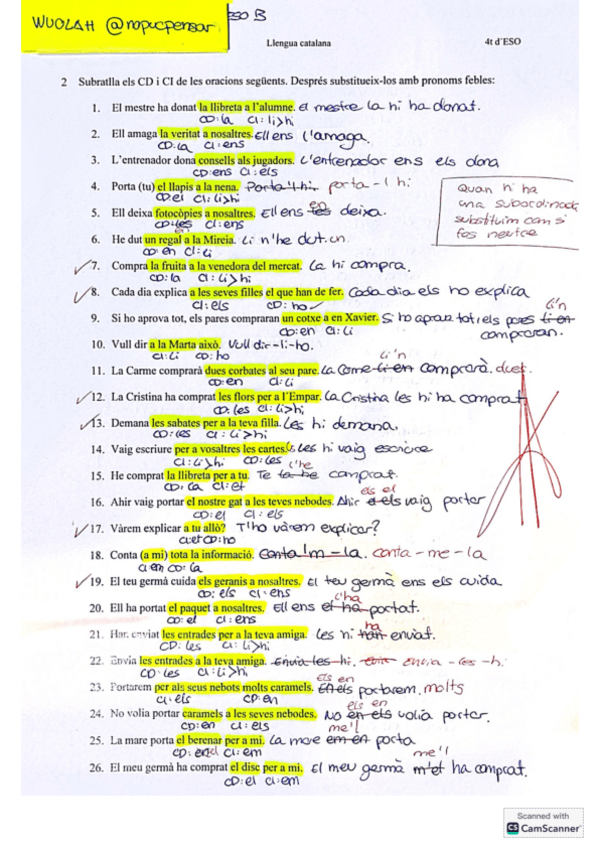 WUOLAH @nopucpensar
ESO B
Llengua catalana 4t d'ESO
2 Subratlla els CD i CI de les oracions següents. Després substitueix-los amb pronoms febles:
1. El mestre ha donat la llibreta a l'alumne. El mestre la hi ha donat.
CD: la CI: li>hi
2. Ell amaga la veritat a nosaltres. Ell ens l'amaga.
CD: la CI: ens
3. L'entrenador dona consells als jugadors. L'entrenador ens els dona
CD: ens CI: els
4. Porta (tu) el llapis a la nena. Porta'l hi. porta-l hi
CD: el CI: li>hi
Quan hi ha
una subordinada
substituim com si
fos neutre
5. Ell deixa fotocòpies a nosaltres. Ell ens les en deixa.
CD: les CI: ens
6. He dut un regal a la Mireia. Li n'he dut.un
CD: en CI: li
7. Compra la fruita a la venedora del mercat. La hi compra.
CD: la CI: li>hi
8. Cada dia explica a les seves filles el que han de fer. Cada dia els ho explica
CI: els CD: ho
9. Si ho aprova tot, els pares compraran un cotxe a en Xavier. Si ho aprova tot, els pares li en li'n
compraran.
CD: en CI: li
10. Vull dir a la Marta això. Vull dir-li-ho.
CI: li CD: ho
11. La Carme comprarà dues corbates al seu pare. La Carme li en li'n comprarà. dues.
CD: en CI: li
12. La Cristina ha comprat les flors per a l'Empar. La Cristina les hi ha comprat
CD: les CI: li>hi
13. Demana les sabates per a la teva filla. Les hi demana.
CD: les CI: li>hi
14. Vaig escriure per a vosaltres les cartes. Les hi vaig escriure
CI: li>hi CD: les
15. He comprat la llibreta per a tu. Te la he l'he comprat.
CD: la CI: et
16. Ahir vaig portar el nostre gat a les teves nebodes. Ahir els el vaig portar
CD: el CI: els
17. Vàrem explicar a tu allò? T'ho vàrem explicar?
CI: et CD: ho
18. Conta (a mi) tota la informació. Conta'm-la. conta-me-la
CI: em CD: la
19. El teu germà cuida els geranis a nosaltres. El teu germà ens els cuida
CD: els CI: ens
20. Ell ha portat el paquet a nosaltres. Ell ens el ha l'ha portat.
CD: el CI: ens
21. Han enviat les entrades per a la teva amiga. Les hi han ha enviat.
CD: les CI: li>hi
22. Envia les entrades a la teva amiga. Envia les hi. envia-les-hi
CD: les CI: li>hi
23. Portarem per als seus nebots molts caramels. En els els en portarem. molts
CI: els CD: en
24. No volia portar caramels a les seves nebodes. No en els els en volia portar.
CD: en CI: els
25. La mare porta el berenar per a mi. La mare em en me'l porta
CD: el CI: em
26. El meu germà ha comprat el disc per a mi. El meu germà m'et me'l ha comprat.
CD: el CI: em
Scanned with
CS CamScanner